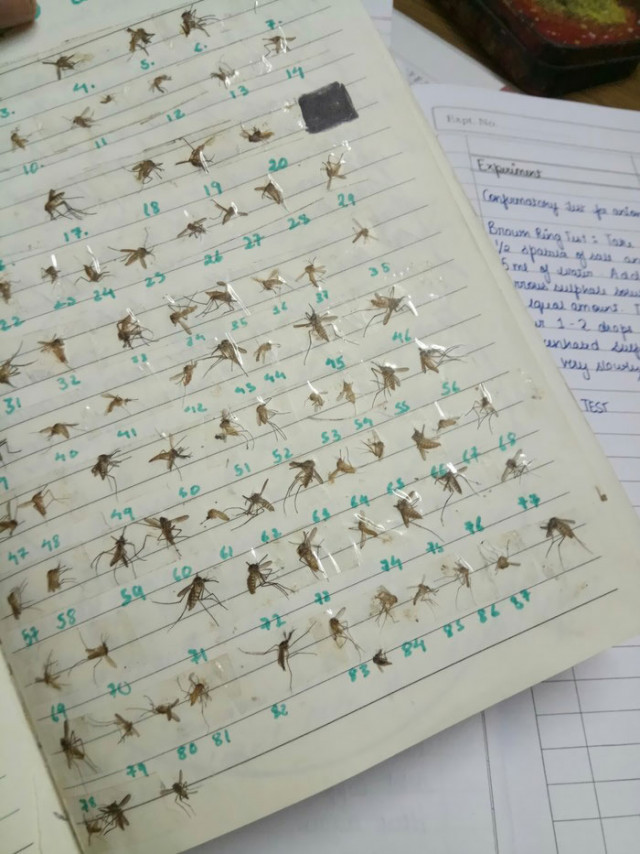 3. 4. 5. 6. 7.
10. 11 12 13 14
17. 18 19 20
22 23 24 25 26 27 28 29
31 32 33 34 35 36 37 35
40 41 42 43 44 45 46
47 48 49 50 51 52 53 54 55 56
57 58 59 60 61 62 63 64 65 66 67 68
69 70 71 72 73 74 75 76 77
78 79 80 81 82 83 84 85 86 87
Expt. No.
Experiment
Confirmatory test for
Brown Ring Test : Take
1/2 spatula of salt
5 ml of water. Add
sulphate
equal amount.
1-2 drops
very slowly
TEST